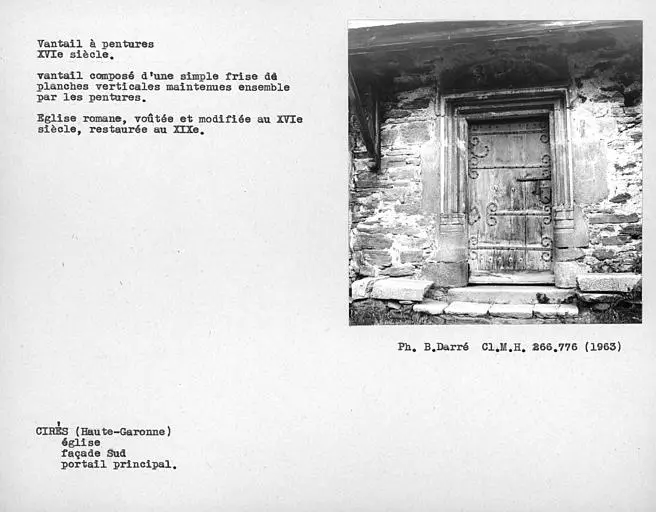 Vantail à pentures
XVIe siècle.
vantail composé d'une simple frise de
planches verticales maintenues ensemble
par les pentures.
Eglise romane, voûtée et modifiée au XVIe
siècle, restaurée au XIXe.
Ph. B.Darré Cl.M.H. 266.776 (1963)
CIRÈS (Haute-Garonne)
église
façade Sud
portail principal.